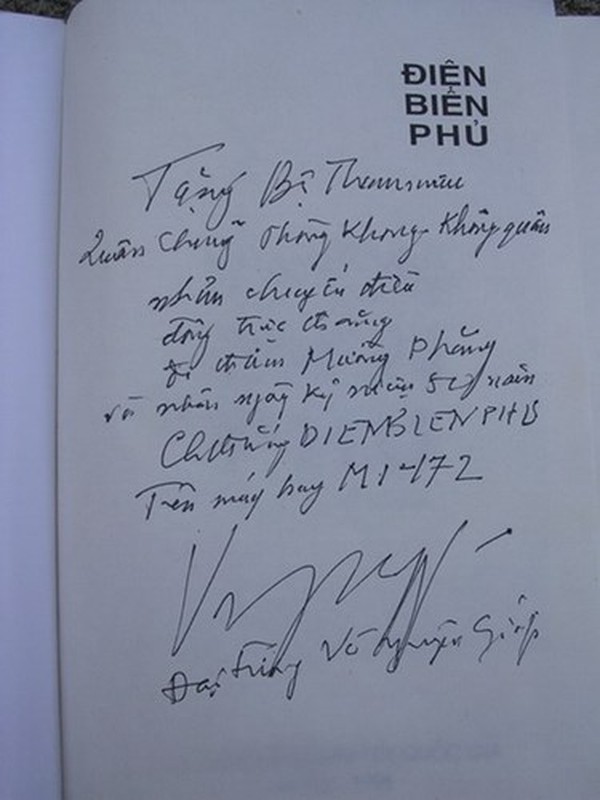 ĐIỆN
BIÊN
PHỦ
Tặng Bộ Tham mưu
Quân chủng Phòng Không - Không quân
nhân chuyến
trực thăng
đi thăm Mường Phăng
và nhân ngày kỷ niệm 50 năm
Ch thắng DIENBIENPHU
Trên máy bay MI-172
Đại tướng Võ Nguyên Giáp